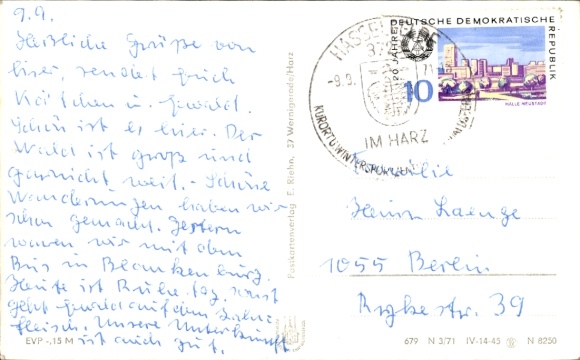 9.9.
Herzliche Grüße von
hier, sendet Euch
Kätchen u. Ewald.
Schön ist es hier. Der
Wald ist groß und
gar nicht weit. - Schöne
Wanderungen haben wir
schon gemacht. Gestern
waren wir mit dem
Bus in Blankenburg.
Heute ist Ruhetag, sonst
geht Ewald auf dem Zahn-
fleisch. Unsere Unterkunft
ist auch gut.
EVP -,15 M
Postkartenverlag E. Riehn, 37 Wernigerode/Harz
HASSELFELDE
372
-9.9.
71
IM HARZ
KURORT U. WINTERSPORTPLATZ
DEUTSCHE DEMOKRATISCHE
REPUBLIK
20 JAHRE DDR
10
HALLE-NEUSTADT
Familie
Heinz Lange
1055 Berlin
Rykestr. 39
679 N 3/71 IV-14-45 N 8250